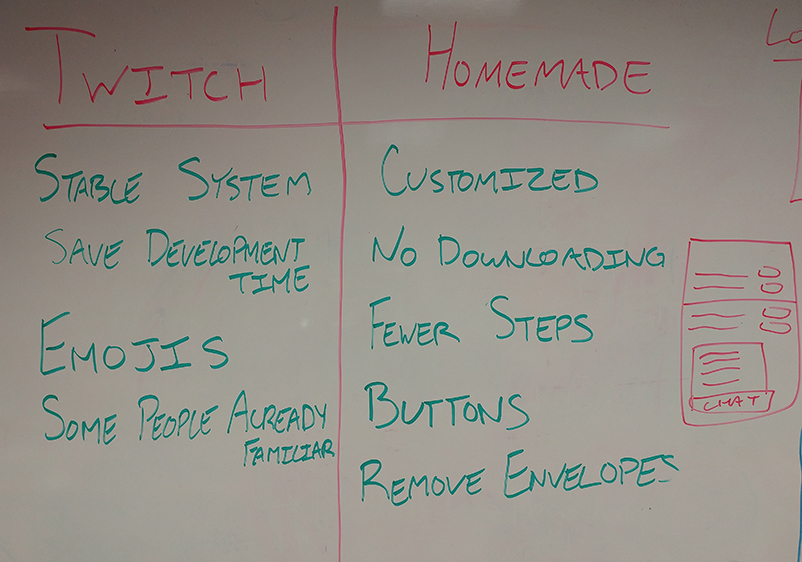 TWITCH
STABLE SYSTEM
SAVE DEVELOPMENT
TIME
EMOJIS
SOME PEOPLE ALREADY
FAMILIAR
HOMEMADE
CUSTOMIZED
NO DOWNLOADING
FEWER STEPS
BUTTONS
REMOVE ENVELOPES
CHAT